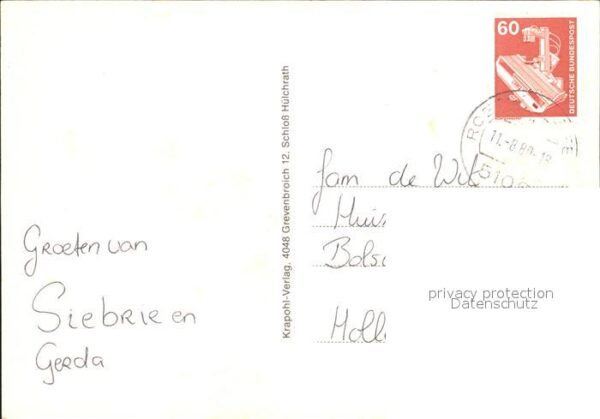 60
DEUTSCHE BUNDESPOST
Krapohl-Verlag, 4048 Grevenbroich 12, Schloß Hülchrath
Groeten van
Siebrie en
Gerda
Jam de Wit
Bols
Holl
privacy protection
Datenschutz